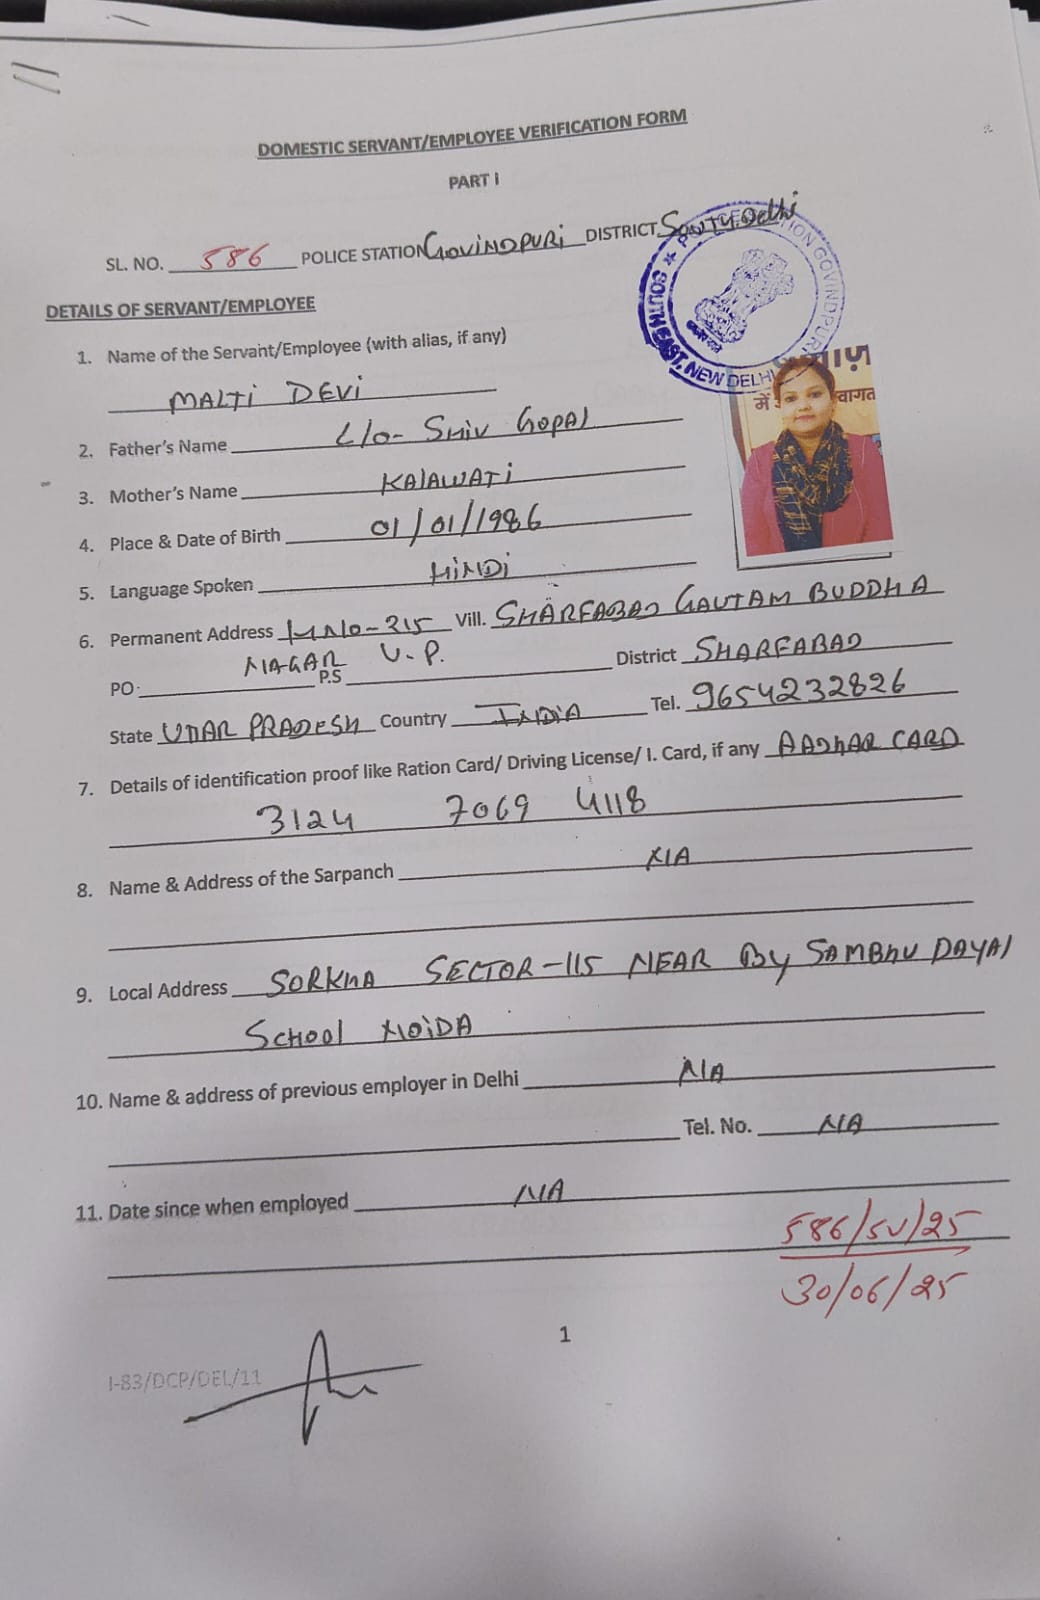 DOMESTIC SERVANT/EMPLOYEE VERIFICATION FORM
PART I
SL. NO. 586 POLICE STATION GOVINDPURI DISTRICT South Delhi
POLICE STATION GOVINDPURI
SOUTH EAST, NEW DELHI
DETAILS OF SERVANT/EMPLOYEE
1. Name of the Servant/Employee (with alias, if any)
MALTI DEVI
में वागत
2. Father's Name L/O- SHIV GOPAl
3. Mother's Name KAlAWATi
4. Place & Date of Birth 01/01/1986
5. Language Spoken HiNDi
6. Permanent Address HNO-315 Vill. SHARFABAD GAUTAM BUDDHA
NAGAR U.P.
PO: P.S District SHARFABAD
State UTTAR PRADESH Country INDIA Tel. 9654232826
7. Details of identification proof like Ration Card/ Driving License/ I. Card, if any AADHAR CARD
3124 7069 4118
8. Name & Address of the Sarpanch N/A
9. Local Address SORKHA SECTOR-115 NEAR By SAMBHU DAYAl
SCHOOl NOiDA
10. Name & address of previous employer in Delhi N/A
Tel. No. N/A
11. Date since when employed N/A
586/SV/25
30/06/25
1
I-83/DCP/DEL/11